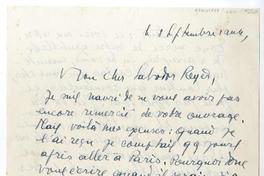 le 1 Septembre 1944,
Mon cher Salvador Reyes,
Je suis navré de ne vous avoir pas
encore remercié de votre ouvrage.
Mais voilà mes excuses: quand je
l'ai reçu je comptais qq jours
après aller à Paris. Pourquoi donc
vous écrire quand il